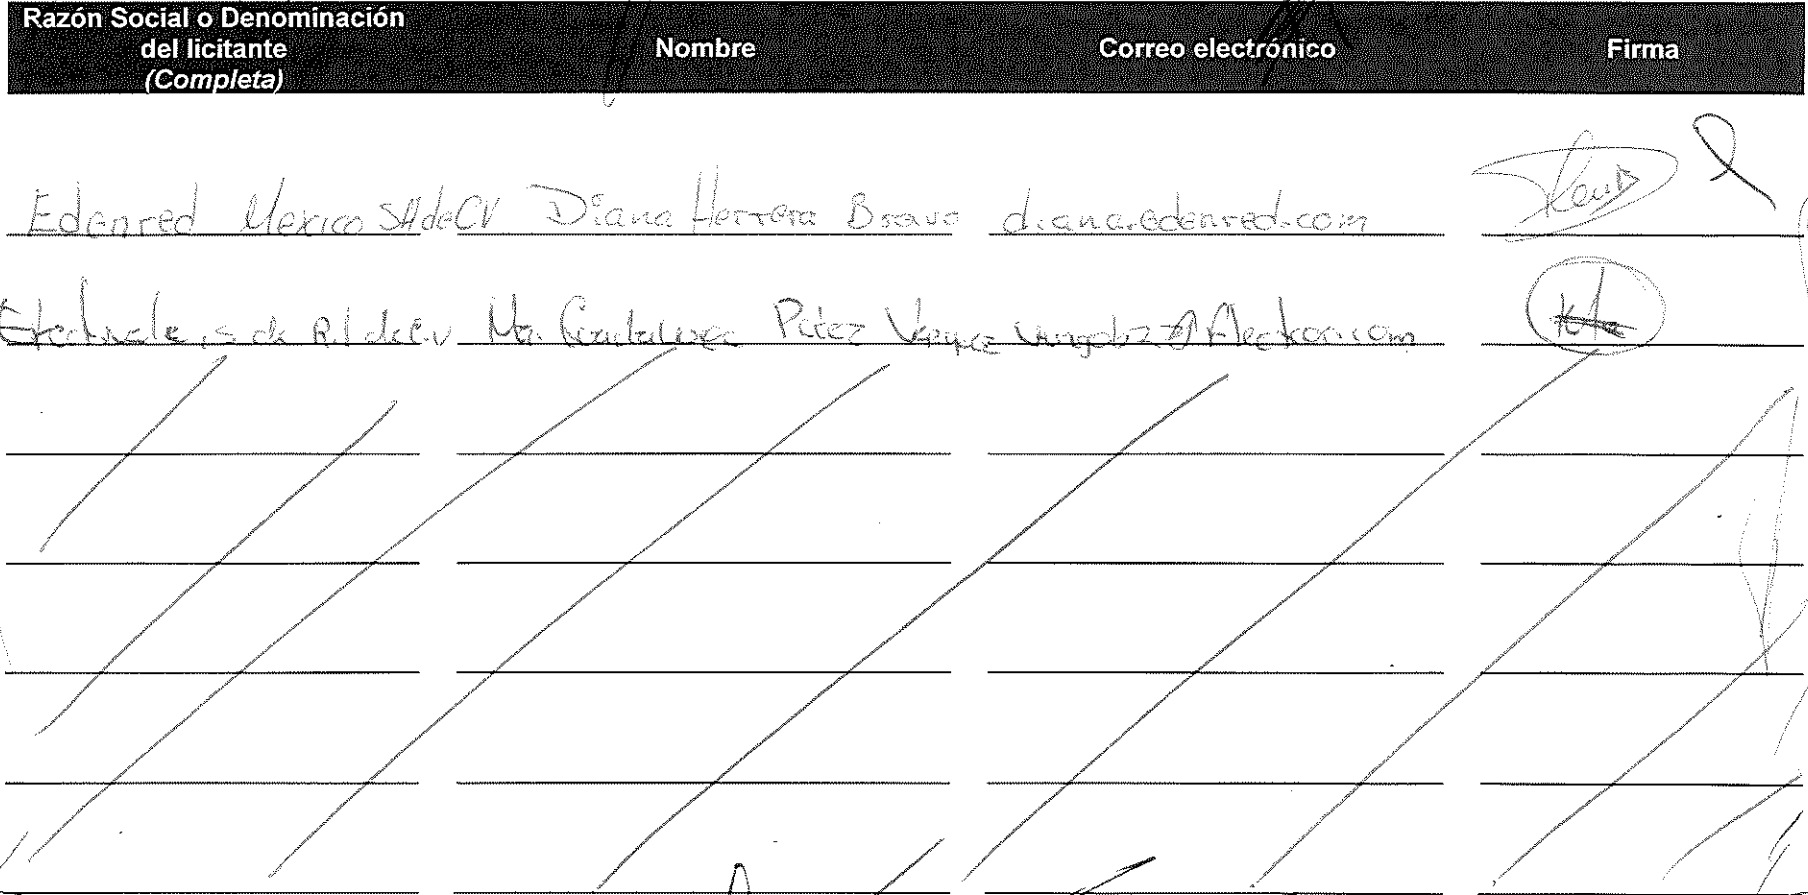 Razón Social o Denominación
del licitante
(Completa)
Nombre
Correo electrónico
Firma
Edenred Mexico SA de CV Diana Herrera Bravo diana.edenred.com
Efectivale, s de R.l de C.v Ma. Guadalupe Pérez Vazquez